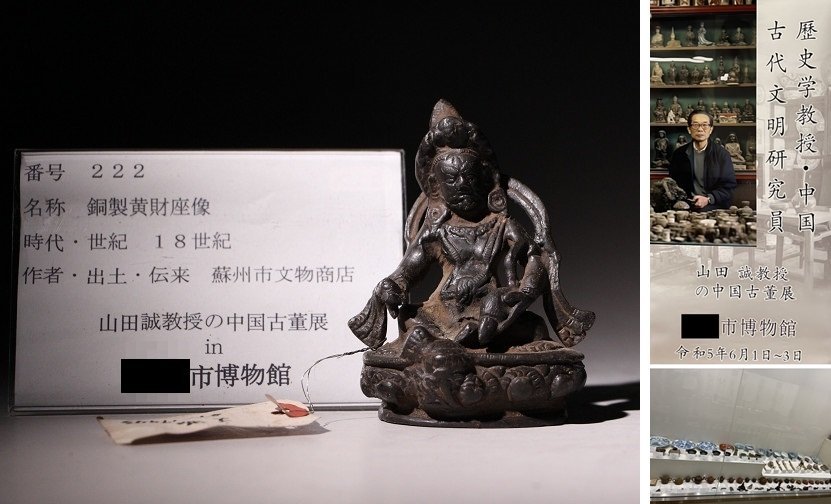 番号　２２２
名称　銅製黄財座像
時代・世紀　１８世紀
作者・出土・伝来　蘇州市文物商店
山田誠教授の中国古董展
in
市博物館
歴史学教授・中国
古代文明研究員
山田 誠教授
の中国古董展
市博物館
令和5年6月1日~3日